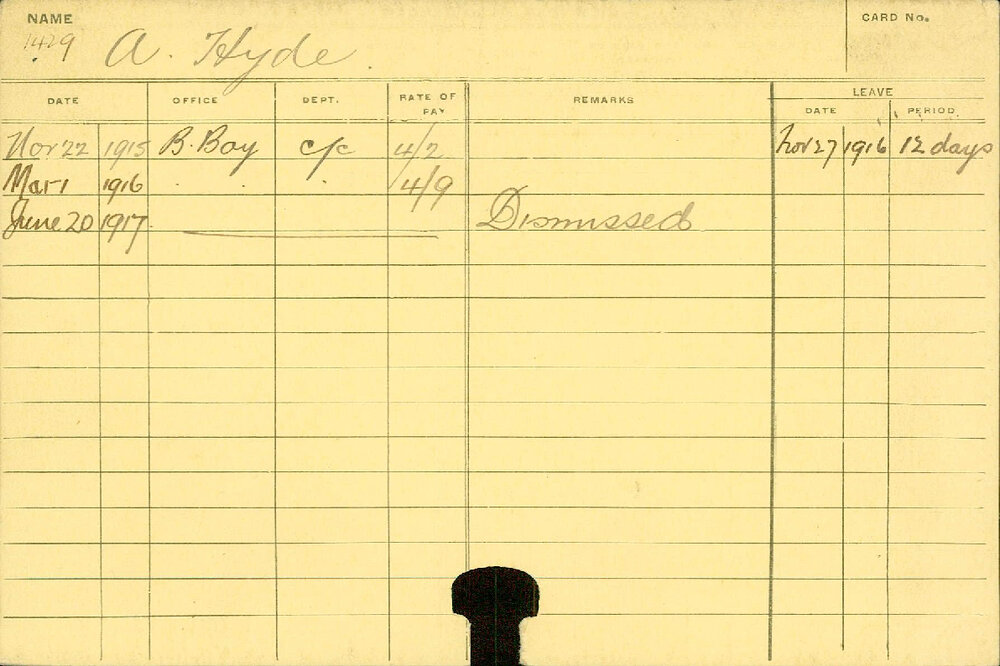 NAME
CARD No.
1429 A. Hyde.
DATE OFFICE DEPT. RATE OF PAY REMARKS LEAVE
DATE PERIOD
Nov 22 1915 B. Boy c/c 4/2 Nov 27 1916 12 days
Mar 1 1916 . . 4/9
June 20 1917 Dismissed